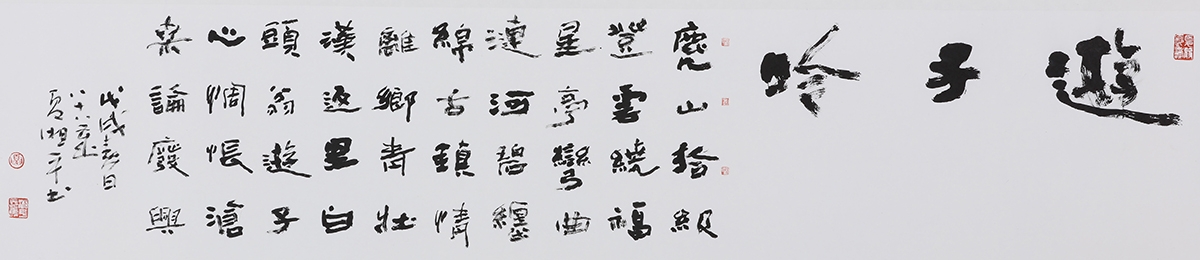 遊子吟
鹿山拾級
登雲繞福
星亭彎曲
漣河碧纏
綿古鎮情
離鄉青壯
漢返里白
頭翁遊子
心惆悵滄
桑論廢興
戊戌春日
夏湘平书